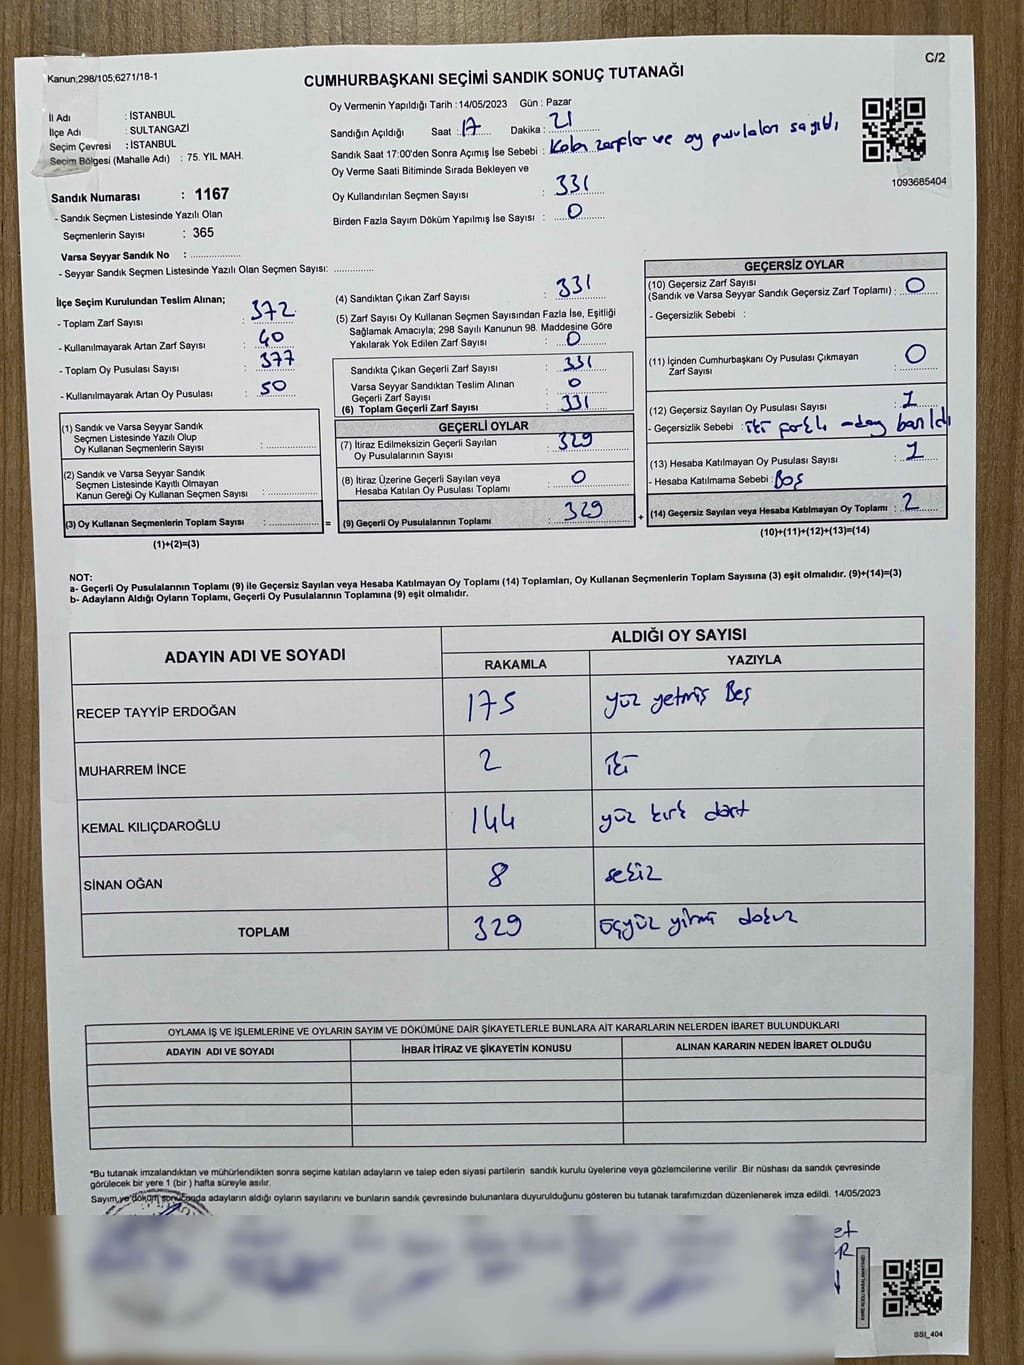 Kanun;298/105;6271/18-1
C/2
CUMHURBAŞKANI SEÇİMİ SANDIK SONUÇ TUTANAĞI
İl Adı : İSTANBUL
İlçe Adı : SULTANGAZİ
Seçim Çevresi : İSTANBUL
Seçim Bölgesi (Mahalle Adı) : 75. YIL MAH.
Sandık Numarası : 1167
- Sandık Seçmen Listesinde Yazılı Olan
Seçmenlerin Sayısı : 365
Varsa Seyyar Sandık No : ................
- Seyyar Sandık Seçmen Listesinde Yazılı Olan Seçmen Sayısı: .............
Oy Vermenin Yapıldığı Tarih :14/05/2023 Gün : Pazar
Sandığın Açıldığı Saat : 17 Dakika : 21
Sandık Saat 17:00'den Sonra Açımış İse Sebebi : Kalan zarflar ve oy pusulaları sayıldı
Oy Verme Saati Bitiminde Sırada Bekleyen ve
Oy Kullandırılan Seçmen Sayısı : 331
Birden Fazla Sayım Döküm Yapılmış İse Sayısı : 0
1093685404
İlçe Seçim Kurulundan Teslim Alınan;
- Toplam Zarf Sayısı : 372
- Kullanılmayarak Artan Zarf Sayısı : 40
- Toplam Oy Pusulası Sayısı : 377
- Kullanılmayarak Artan Oy Pusulası : 50
(1) Sandık ve Varsa Seyyar Sandık
Seçmen Listesinde Yazılı Olup
Oy Kullanan Seçmenlerin Sayısı : ............
(2) Sandık ve Varsa Seyyar Sandık
Seçmen Listesinde Kayıtlı Olmayan
Kanun Gereği Oy Kullanan Seçmen Sayısı : ............
(3) Oy Kullanan Seçmenlerin Toplam Sayısı : ............ =
(1)+(2)=(3)
(4) Sandıktan Çıkan Zarf Sayısı : 331
(5) Zarf Sayısı Oy Kullanan Seçmen Sayısından Fazla İse, Eşitliği
Sağlamak Amacıyla; 298 Sayılı Kanunun 98. Maddesine Göre
Yakılarak Yok Edilen Zarf Sayısı : 0
Sandıkta Çıkan Geçerli Zarf Sayısı : 331
Varsa Seyyar Sandıktan Teslim Alınan
Geçerli Zarf Sayısı : 0
(6) Toplam Geçerli Zarf Sayısı : 331
GEÇERLİ OYLAR
(7) İtiraz Edilmeksizin Geçerli Sayılan
Oy Pusulalarının Sayısı : 329
(8) İtiraz Üzerine Geçerli Sayılan veya
Hesaba Katılan Oy Pusulası Toplamı : 0
(9) Geçerli Oy Pusulalarının Toplamı : 329 +
GEÇERSİZ OYLAR
(10) Geçersiz Zarf Sayısı
(Sandık ve Varsa Seyyar Sandık Geçersiz Zarf Toplamı) : 0
- Geçersizlik Sebebi :
(11) İçinden Cumhurbaşkanı Oy Pusulası Çıkmayan
Zarf Sayısı : 0
(12) Geçersiz Sayılan Oy Pusulası Sayısı : 1
- Geçersizlik Sebebi : iki farklı aday basıldı
(13) Hesaba Katılmayan Oy Pusulası Sayısı : 1
- Hesaba Katılmama Sebebi : Boş
(14) Geçersiz Sayılan veya Hesaba Katılmayan Oy Toplamı : 2
(10)+(11)+(12)+(13)=(14)
NOT:
a- Geçerli Oy Pusulalarının Toplamı (9) ile Geçersiz Sayılan veya Hesaba Katılmayan Oy Toplamı (14) Toplamları, Oy Kullanan Seçmenlerin Toplam Sayısına (3) eşit olmalıdır. (9)+(14)=(3)
b- Adayların Aldığı Oyların Toplamı, Geçerli Oy Pusulalarının Toplamına (9) eşit olmalıdır.
ADAYIN ADI VE SOYADI
ALDIĞI OY SAYISI
RAKAMLA YAZIYLA
RECEP TAYYİP ERDOĞAN 175 yüz yetmiş Beş
MUHARREM İNCE 2 iki
KEMAL KILIÇDAROĞLU 144 yüz kırk dört
SİNAN OĞAN 8 sekiz
TOPLAM 329 üçyüz yirmi dokuz
OYLAMA İŞ VE İŞLEMLERİNE VE OYLARIN SAYIM VE DÖKÜMÜNE DAİR ŞİKAYETLERLE BUNLARA AİT KARARLARIN NELERDEN İBARET BULUNDUKLARI
ADAYIN ADI VE SOYADI İHBAR İTİRAZ VE ŞİKAYETİN KONUSU ALINAN KARARIN NEDEN İBARET OLDUĞU
*Bu tutanak imzalandıktan ve mühürlendikten sonra seçime katılan adayların ve talep eden siyasi partilerin sandık kurulu üyelerine veya gözlemcilerine verilir .Bir nüshası da sandık çevresinde
görülecek bir yere 1 (bir ) hafta süreyle asılır.
Sayım ve döküm sonucunda adayların aldığı oyların sayılarını ve bunların sandık çevresinde bulunanlara duyurulduğunu gösteren bu tutanak tarafımızdan düzenlenerek imza edildi. 14/05/2023
SSI_404